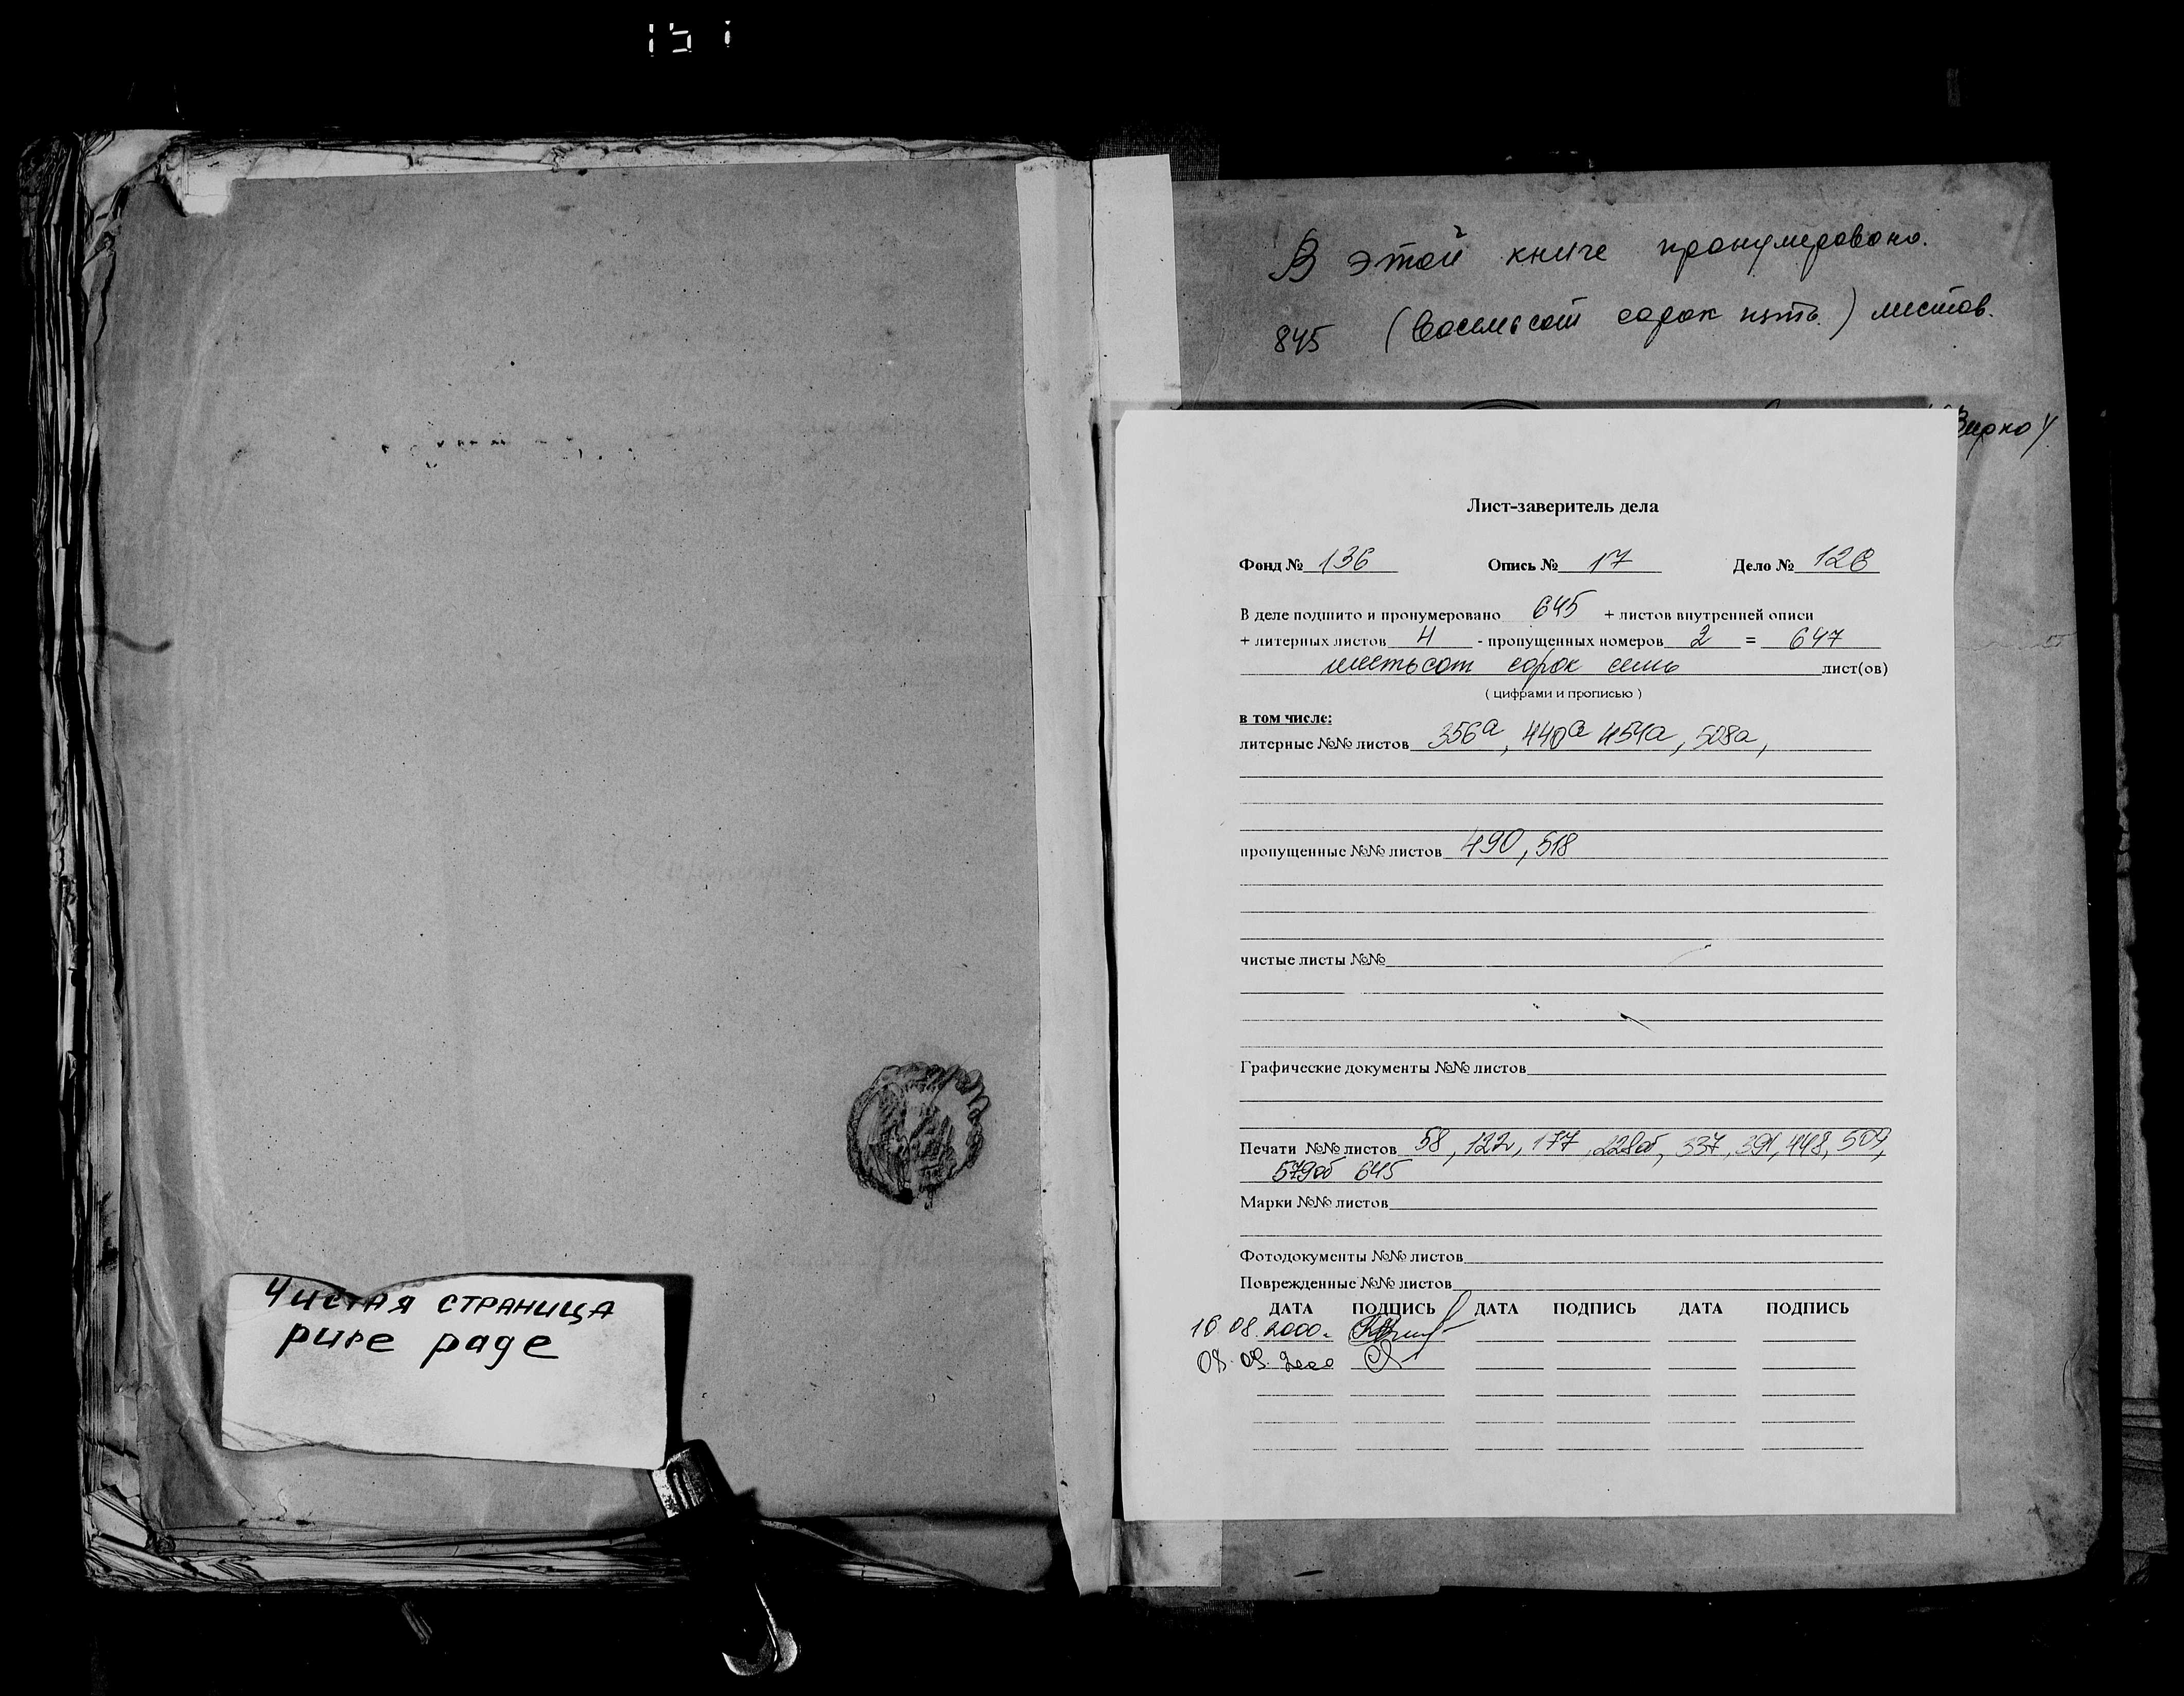 В этой книге пронумеровано.
845 (Восемьсот сорок пять.) листов.
Лист-заверитель дела
Фонд № 136 Опись № 17 Дело № 126
В деле подшито и пронумеровано 645 + листов внутренней описи
+ литерных листов 4 - пропущенных номеров 2 = 647
шестьсот сорок семь лист(ов)
( цифрами и прописью )
в том числе:
литерные №№ листов 356а, 440а 454а, 508а,
пропущенные №№ листов 490, 518
чистые листы №№
Графические документы №№ листов
Печати №№ листов 58, 122, 177, 228об, 337, 391, 448, 509,
579об 645
Марки №№ листов
Фотодокументы №№ листов
Поврежденные №№ листов
ДАТА ПОДПИСЬ ДАТА ПОДПИСЬ ДАТА ПОДПИСЬ
16 08. 2000.
Чистая страница
pure page